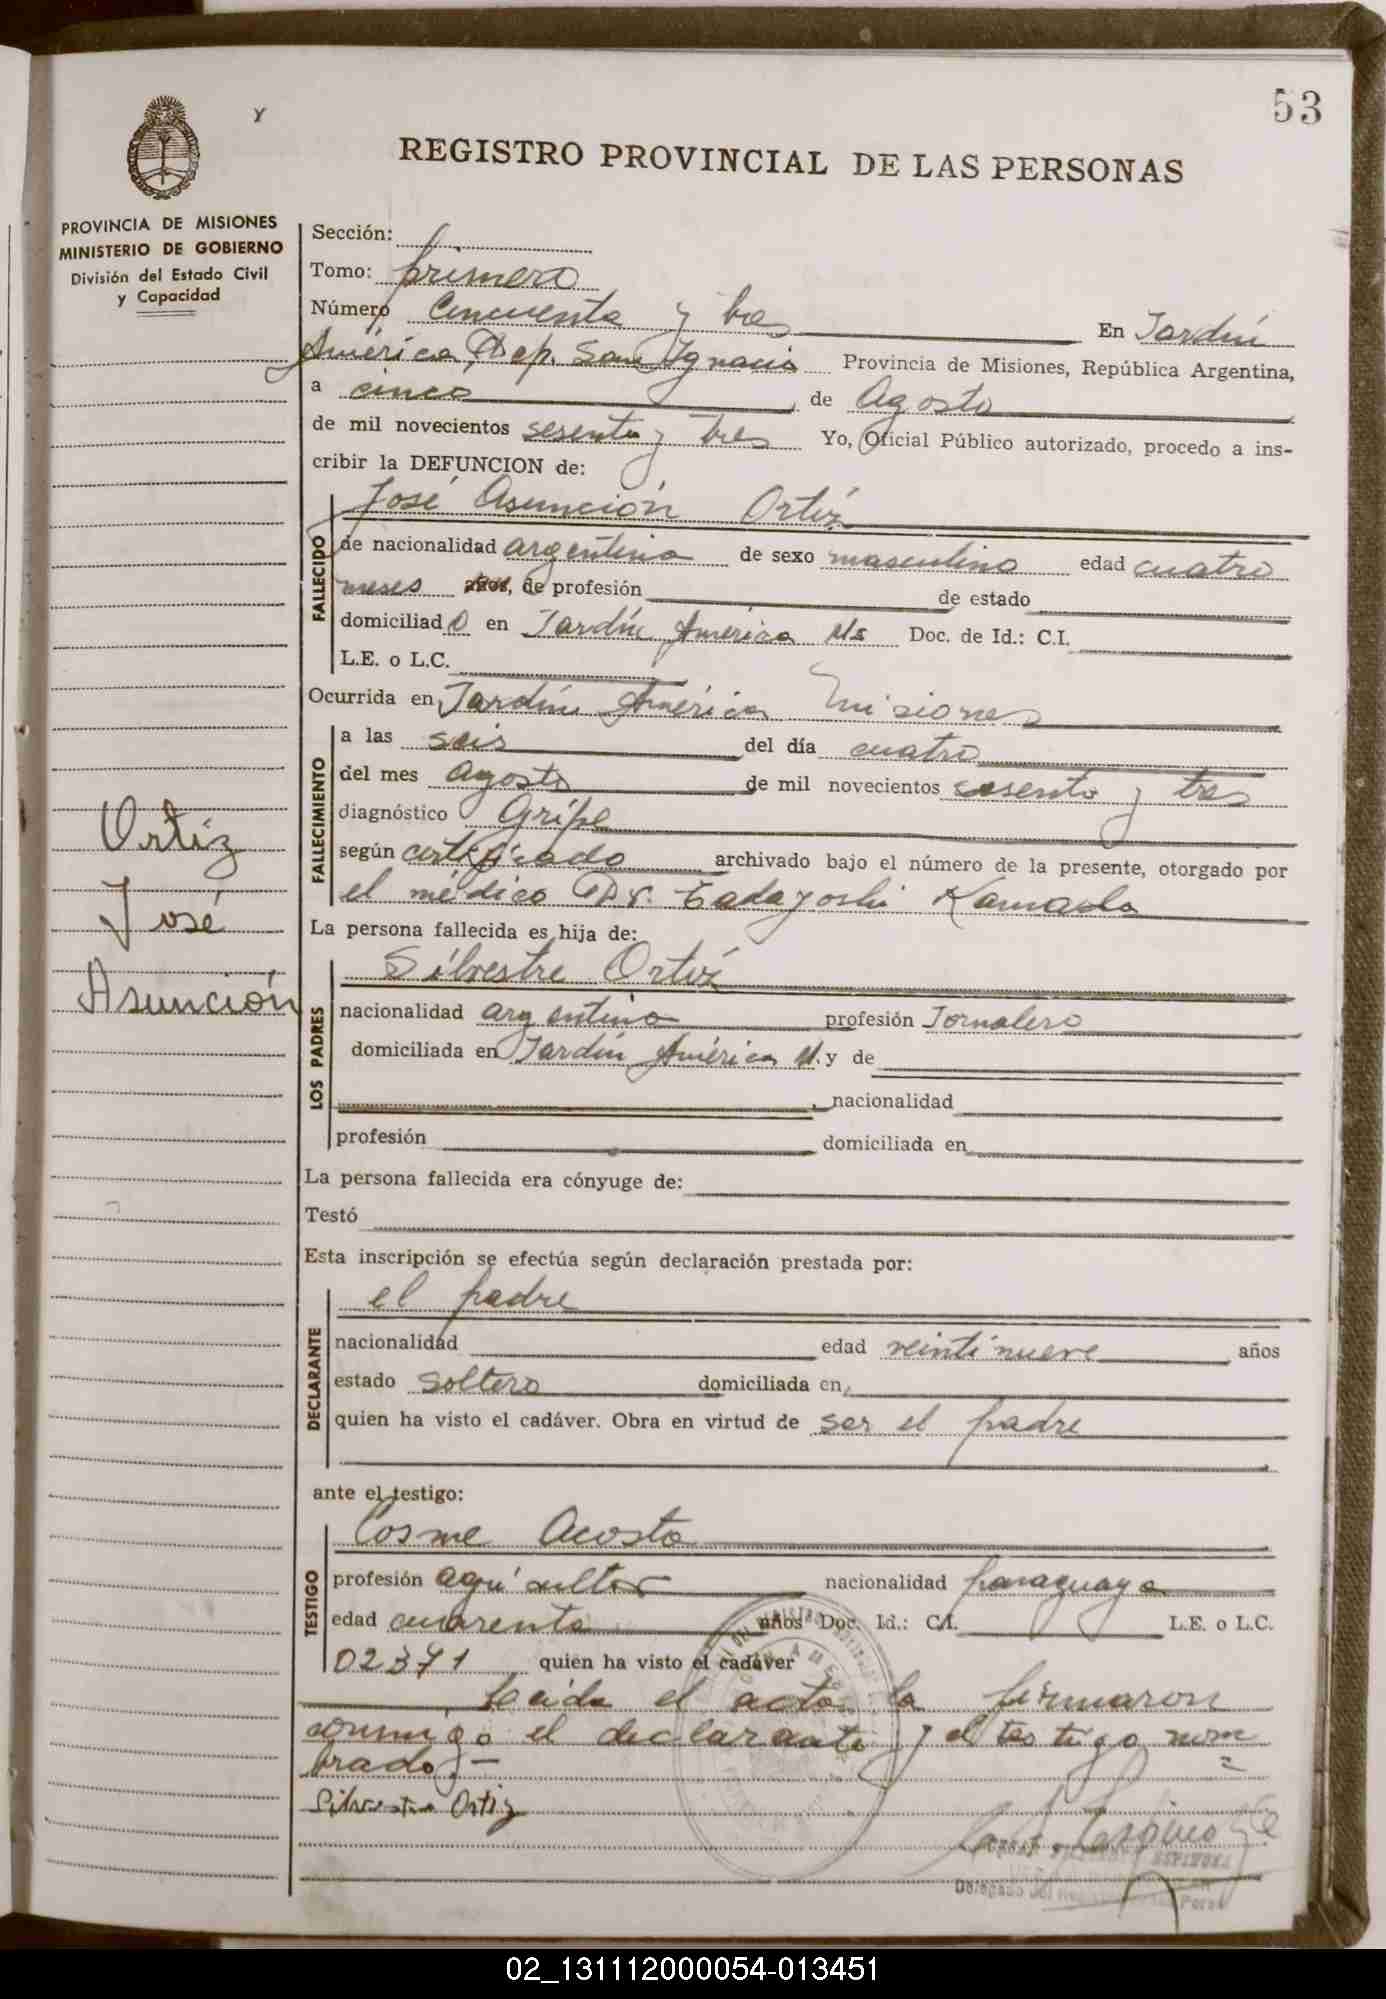 53
Y
REGISTRO PROVINCIAL DE LAS PERSONAS
PROVINCIA DE MISIONES
MINISTERIO DE GOBIERNO
División del Estado Civil
y Capacidad
Sección:
Tomo: primero
Número cincuenta y tres En Jardín
América, Dep. San Ignacio Provincia de Misiones, República Argentina,
a cinco de Agosto
de mil novecientos sesenta y tres Yo, Oficial Público autorizado, procedo a ins-
cribir la DEFUNCION de:
José Asunción Ortíz
FALLECIDO
de nacionalidad argentina de sexo masculino edad cuatro
meses años, de profesión de estado
domiciliado en Jardín América Ms Doc. de Id.: C.I.
L.E. o L.C.
Ocurrida en Jardín América Misiones
FALLECIMIENTO
a las seis del día cuatro
del mes Agosto de mil novecientos sesenta y tres
diagnóstico Gripe
según certificado archivado bajo el número de la presente, otorgado por
el médico Dr. Tadayoshi Kamada
Ortiz
José
Asunción
La persona fallecida es hija de:
LOS PADRES
Silvestre Ortíz
nacionalidad argentino profesión Jornalero
domiciliada en Jardín América M. y de
nacionalidad
profesión domiciliada en
La persona fallecida era cónyuge de:
Testó
Esta inscripción se efectúa según declaración prestada por:
DECLARANTE
el padre
nacionalidad edad veintinueve años
estado soltero domiciliada en
quien ha visto el cadáver. Obra en virtud de ser el padre
ante el testigo:
TESTIGO
Cosme Acosta
profesión agricultor nacionalidad paraguaya
edad cuarenta años Doc. Id.: C.I. L.E. o L.C.
02371 quien ha visto el cadáver
Leida el acta la firmaron
conmigo el declarante y el testigo nom
brado.-
Silvestre Ortiz
Delegado del
02_131112000054-013451